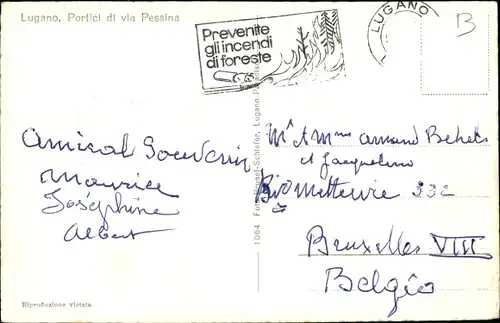 Lugano, Portici di via Pessina
Prevenite
gli incendi
di foreste
LUGANO
B
Amical Souvenir
Maurice
Joséphine
Albert
1064 Lugano
Mr & Mme Armand
et Jacqueline
332
Bruxelles VIII
Belgio
Riproduzione vietata